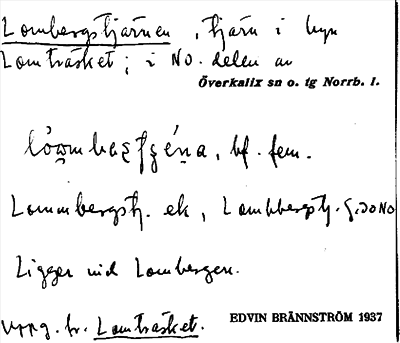 Lombergstjärnen, tjärn i byn
Lomträsket; i NO. delen av
Överkalix sn o. tg Norrb. l.
bf. fem.
Lommbergstj. ek, Lombbergtj. G.50NO
Ligger vid Lombergen.
Uppg. fr. Lomträsket.
EDVIN BRÄNNSTRÖM 1937